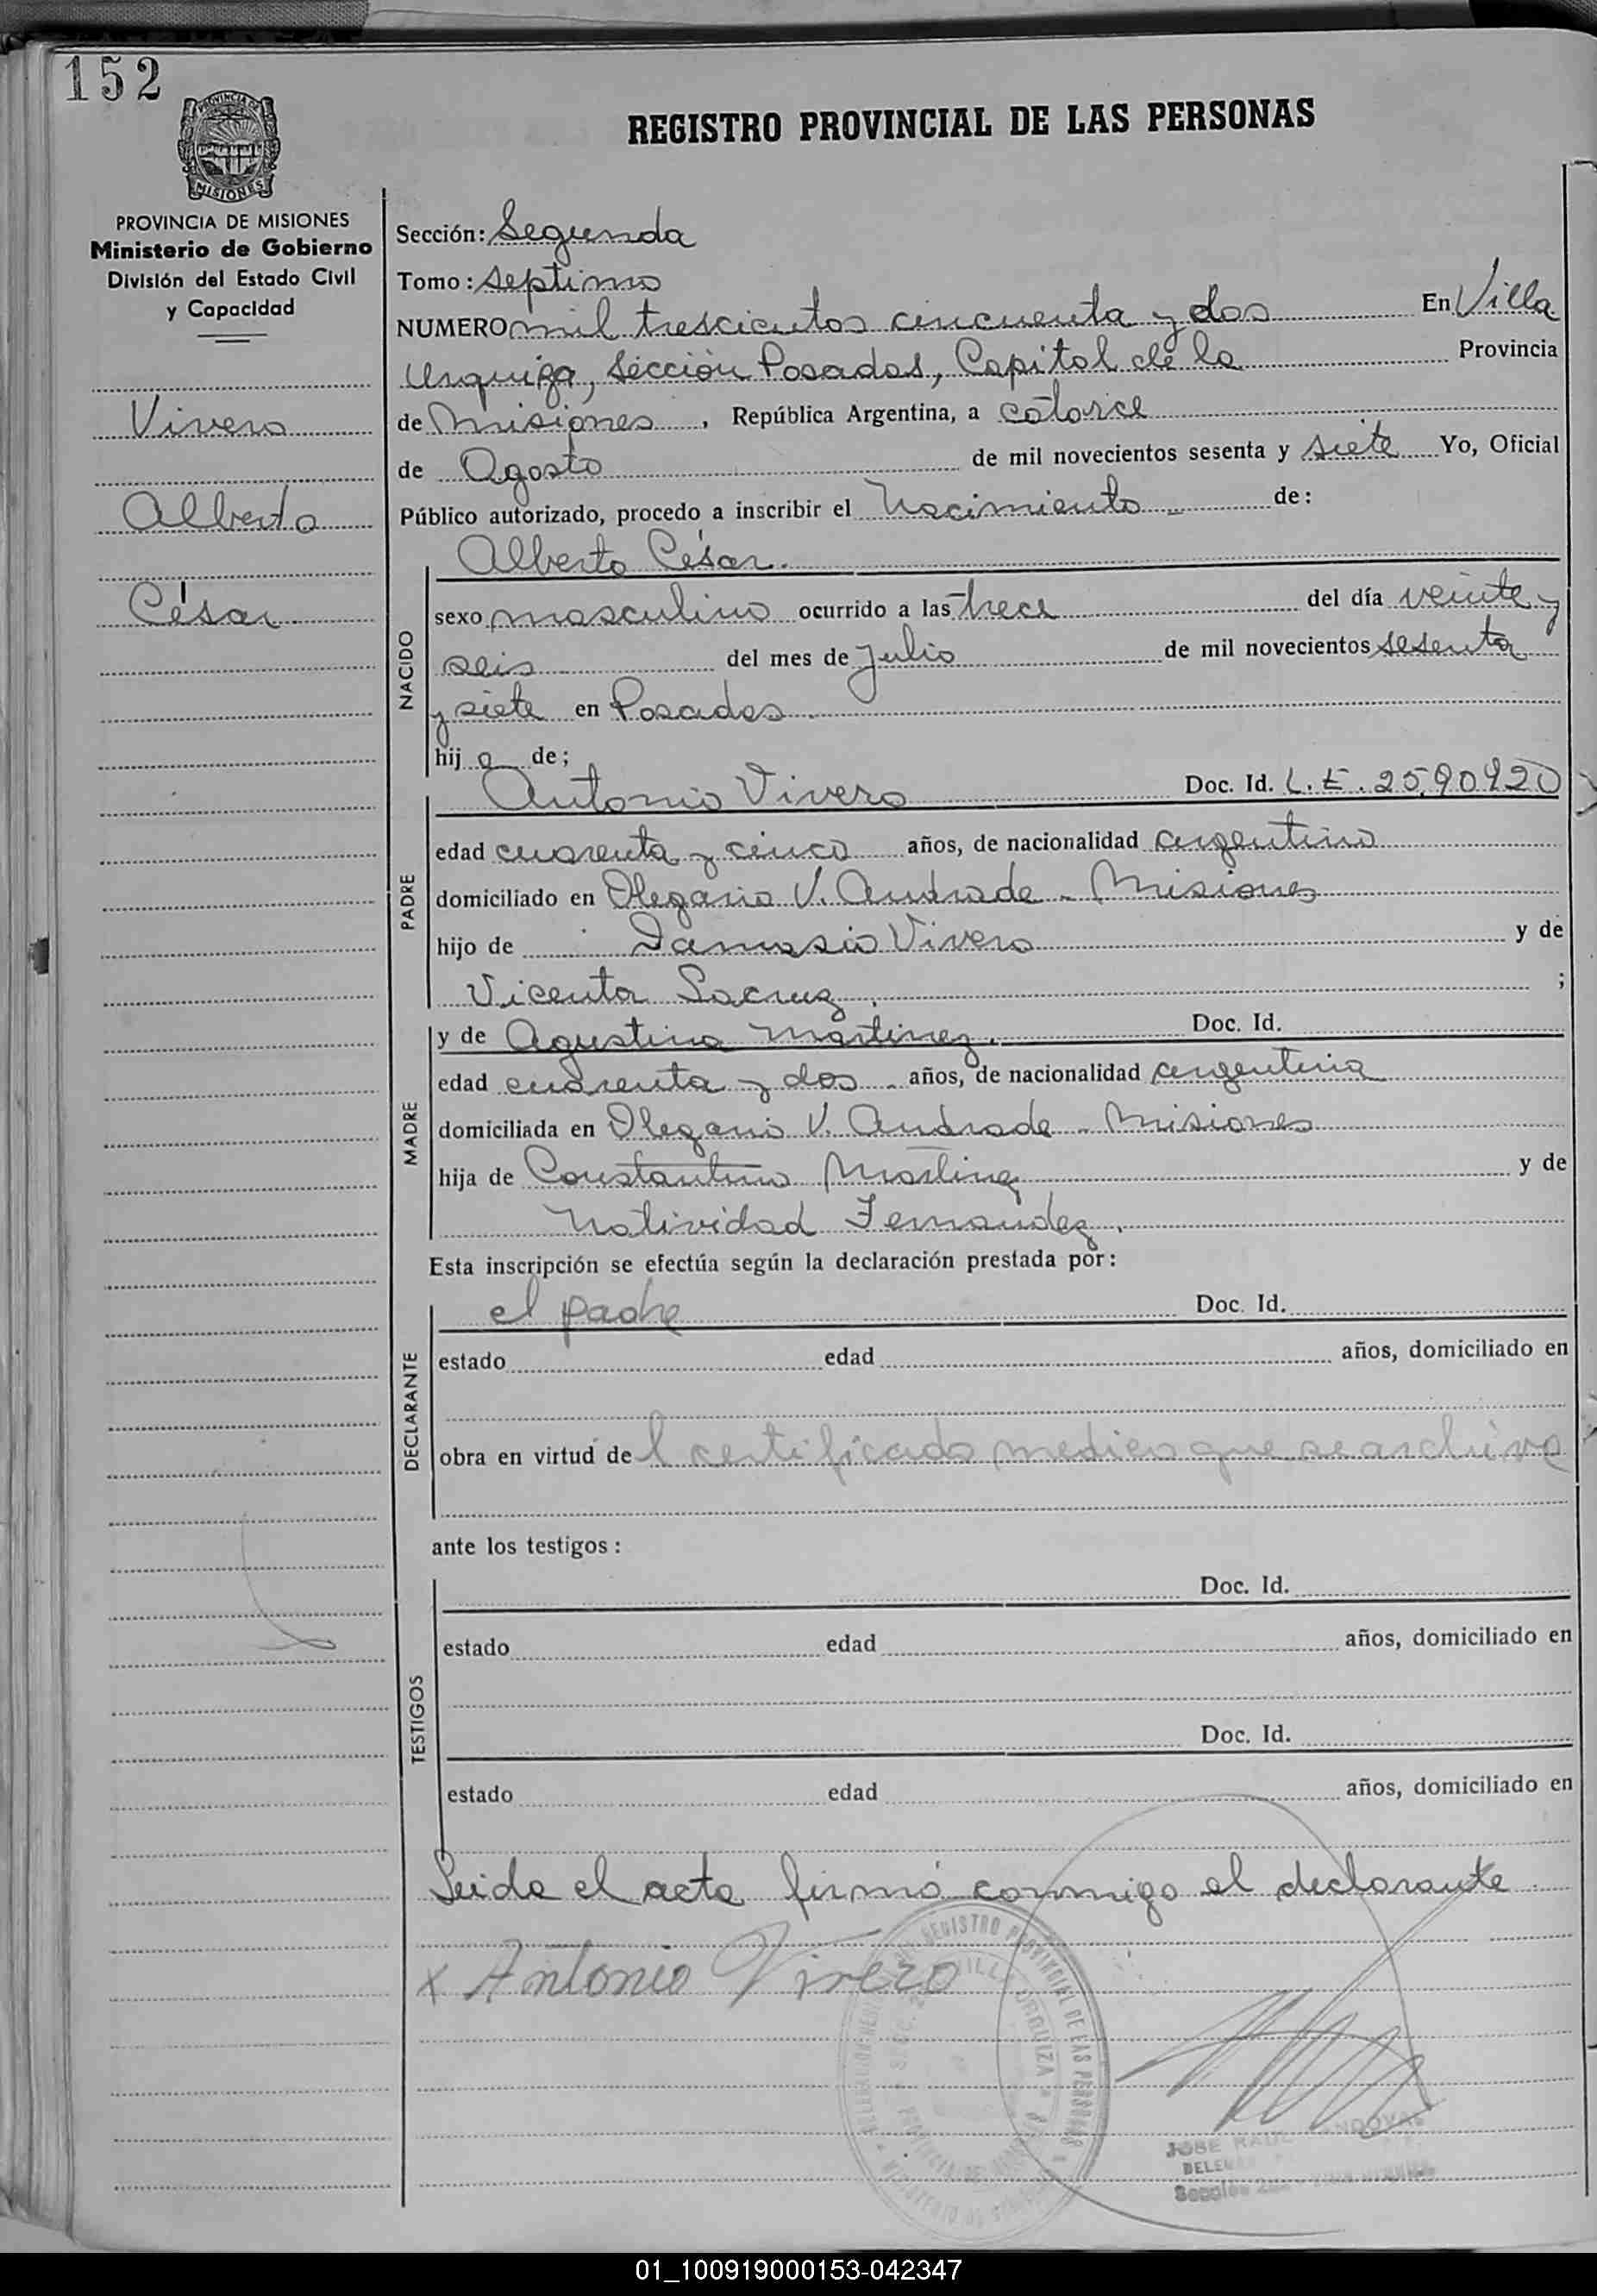 152
PROVINCIA DE
MISIONES
REGISTRO PROVINCIAL DE LAS PERSONAS
PROVINCIA DE MISIONES
Ministerio de Gobierno
División del Estado Civil
y Capacidad
Vivero
Alberto
César
Sección: Segunda
Tomo: septimo
NUMERO mil trescientos cincuenta y dos En Villa
Urquiza, Sección Posadas, Capital de la Provincia
de Misiones, República Argentina, a catorce
de Agosto de mil novecientos sesenta y siete Yo, Oficial
Público autorizado, procedo a inscribir el Nacimiento de:
Alberto César.
NACIDO
sexo masculino ocurrido a las trece del día veinte y
seis del mes de Julio de mil novecientos sesenta
y siete en Posadas.
hijo de;
PADRE
Antonio Vivero Doc. Id. L.E. 2590920
edad cuarenta y cinco años, de nacionalidad argentino
domiciliado en Olegario V. Andrade - Misiones
hijo de Damasio Vivero y de
Vicenta Lacruz. ;
MADRE
y de Agustina Martinez. Doc. Id.
edad cuarenta y dos años, de nacionalidad argentina
domiciliada en Olegario V. Andrade - Misiones
hija de Constantino Martinez y de
Natividad Fernandez.
Esta inscripción se efectúa según la declaración prestada por:
DECLARANTE
el padre Doc. Id.
estado edad años, domiciliado en
obra en virtud del certificado medico que se archiva
ante los testigos:
TESTIGOS
Doc. Id.
estado edad años, domiciliado en
Doc. Id.
estado edad años, domiciliado en
Leida el acta firmó conmigo el declarante.
x Antonio Vivero
REGISTRO PROVINCIAL DE LAS PERSONAS
VILLA URQUIZA
JOSE RAUL
01_100919000153-042347